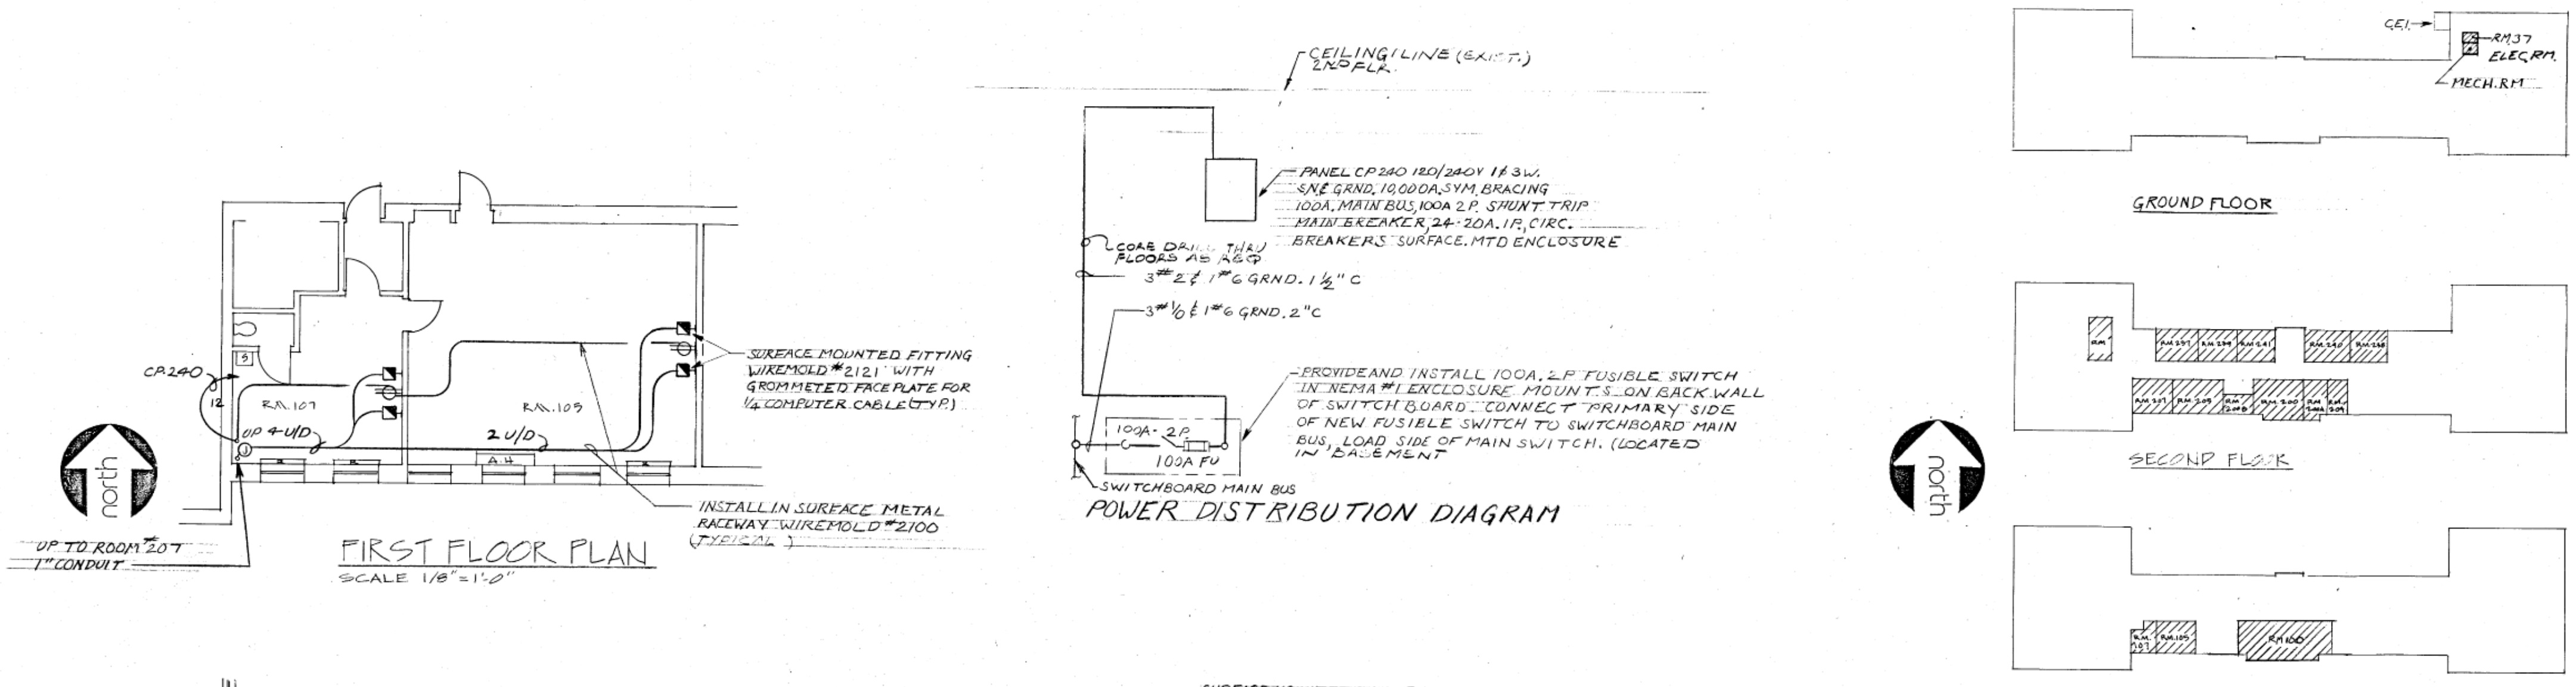 CP.240
12
S
RM.107
RM.105
UP 4 U/D
2 U/D
J
A.H
SURFACE MOUNTED FITTING
WIREMOLD #2121 WITH
GROMMETED FACEPLATE FOR
1/4 COMPUTER CABLE (TYP.)
INSTALL IN SURFACE METAL
RACEWAY WIREMOLD #2100
(TYPICAL)
north
UP TO ROOM #207
1" CONDUIT
FIRST FLOOR PLAN
SCALE 1/8"=1'-0"
CEILING LINE (EXIST.)
2ND FLR.
PANEL CP240 120/240V 1φ 3W.
S/N & GRND. 10,000A. SYM. BRACING
100A. MAIN BUS, 100A 2P. SHUNT TRIP
MAIN BREAKER, 24-20A. 1P. CIRC.
BREAKERS SURFACE. MTD ENCLOSURE
CORE DRILL THRU
FLOORS AS REQ
3#2 & 1#6 GRND. 1 1/2" C
3#1/0 & 1#6 GRND. 2"C
PROVIDE AND INSTALL 100A. 2P FUSIBLE SWITCH
IN NEMA #1 ENCLOSURE MOUNTS ON BACK WALL
OF SWITCH BOARD. CONNECT PRIMARY SIDE
OF NEW FUSIBLE SWITCH TO SWITCHBOARD MAIN
BUS, LOAD SIDE OF MAIN SWITCH. (LOCATED
IN BASEMENT
100A- 2P.
100A FU
SWITCHBOARD MAIN BUS
POWER DISTRIBUTION DIAGRAM
C.E.I.
RM.37
ELEC, RM.
MECH. RM
GROUND FLOOR
north
RM
RM.237
RM.239
RM.241
RM.240
RM.238
RM.207
RM.205
RM
200B
RM.200
RM
200A
RM.
201
SECOND FLOOR
RM.
107
RM.105
RM100